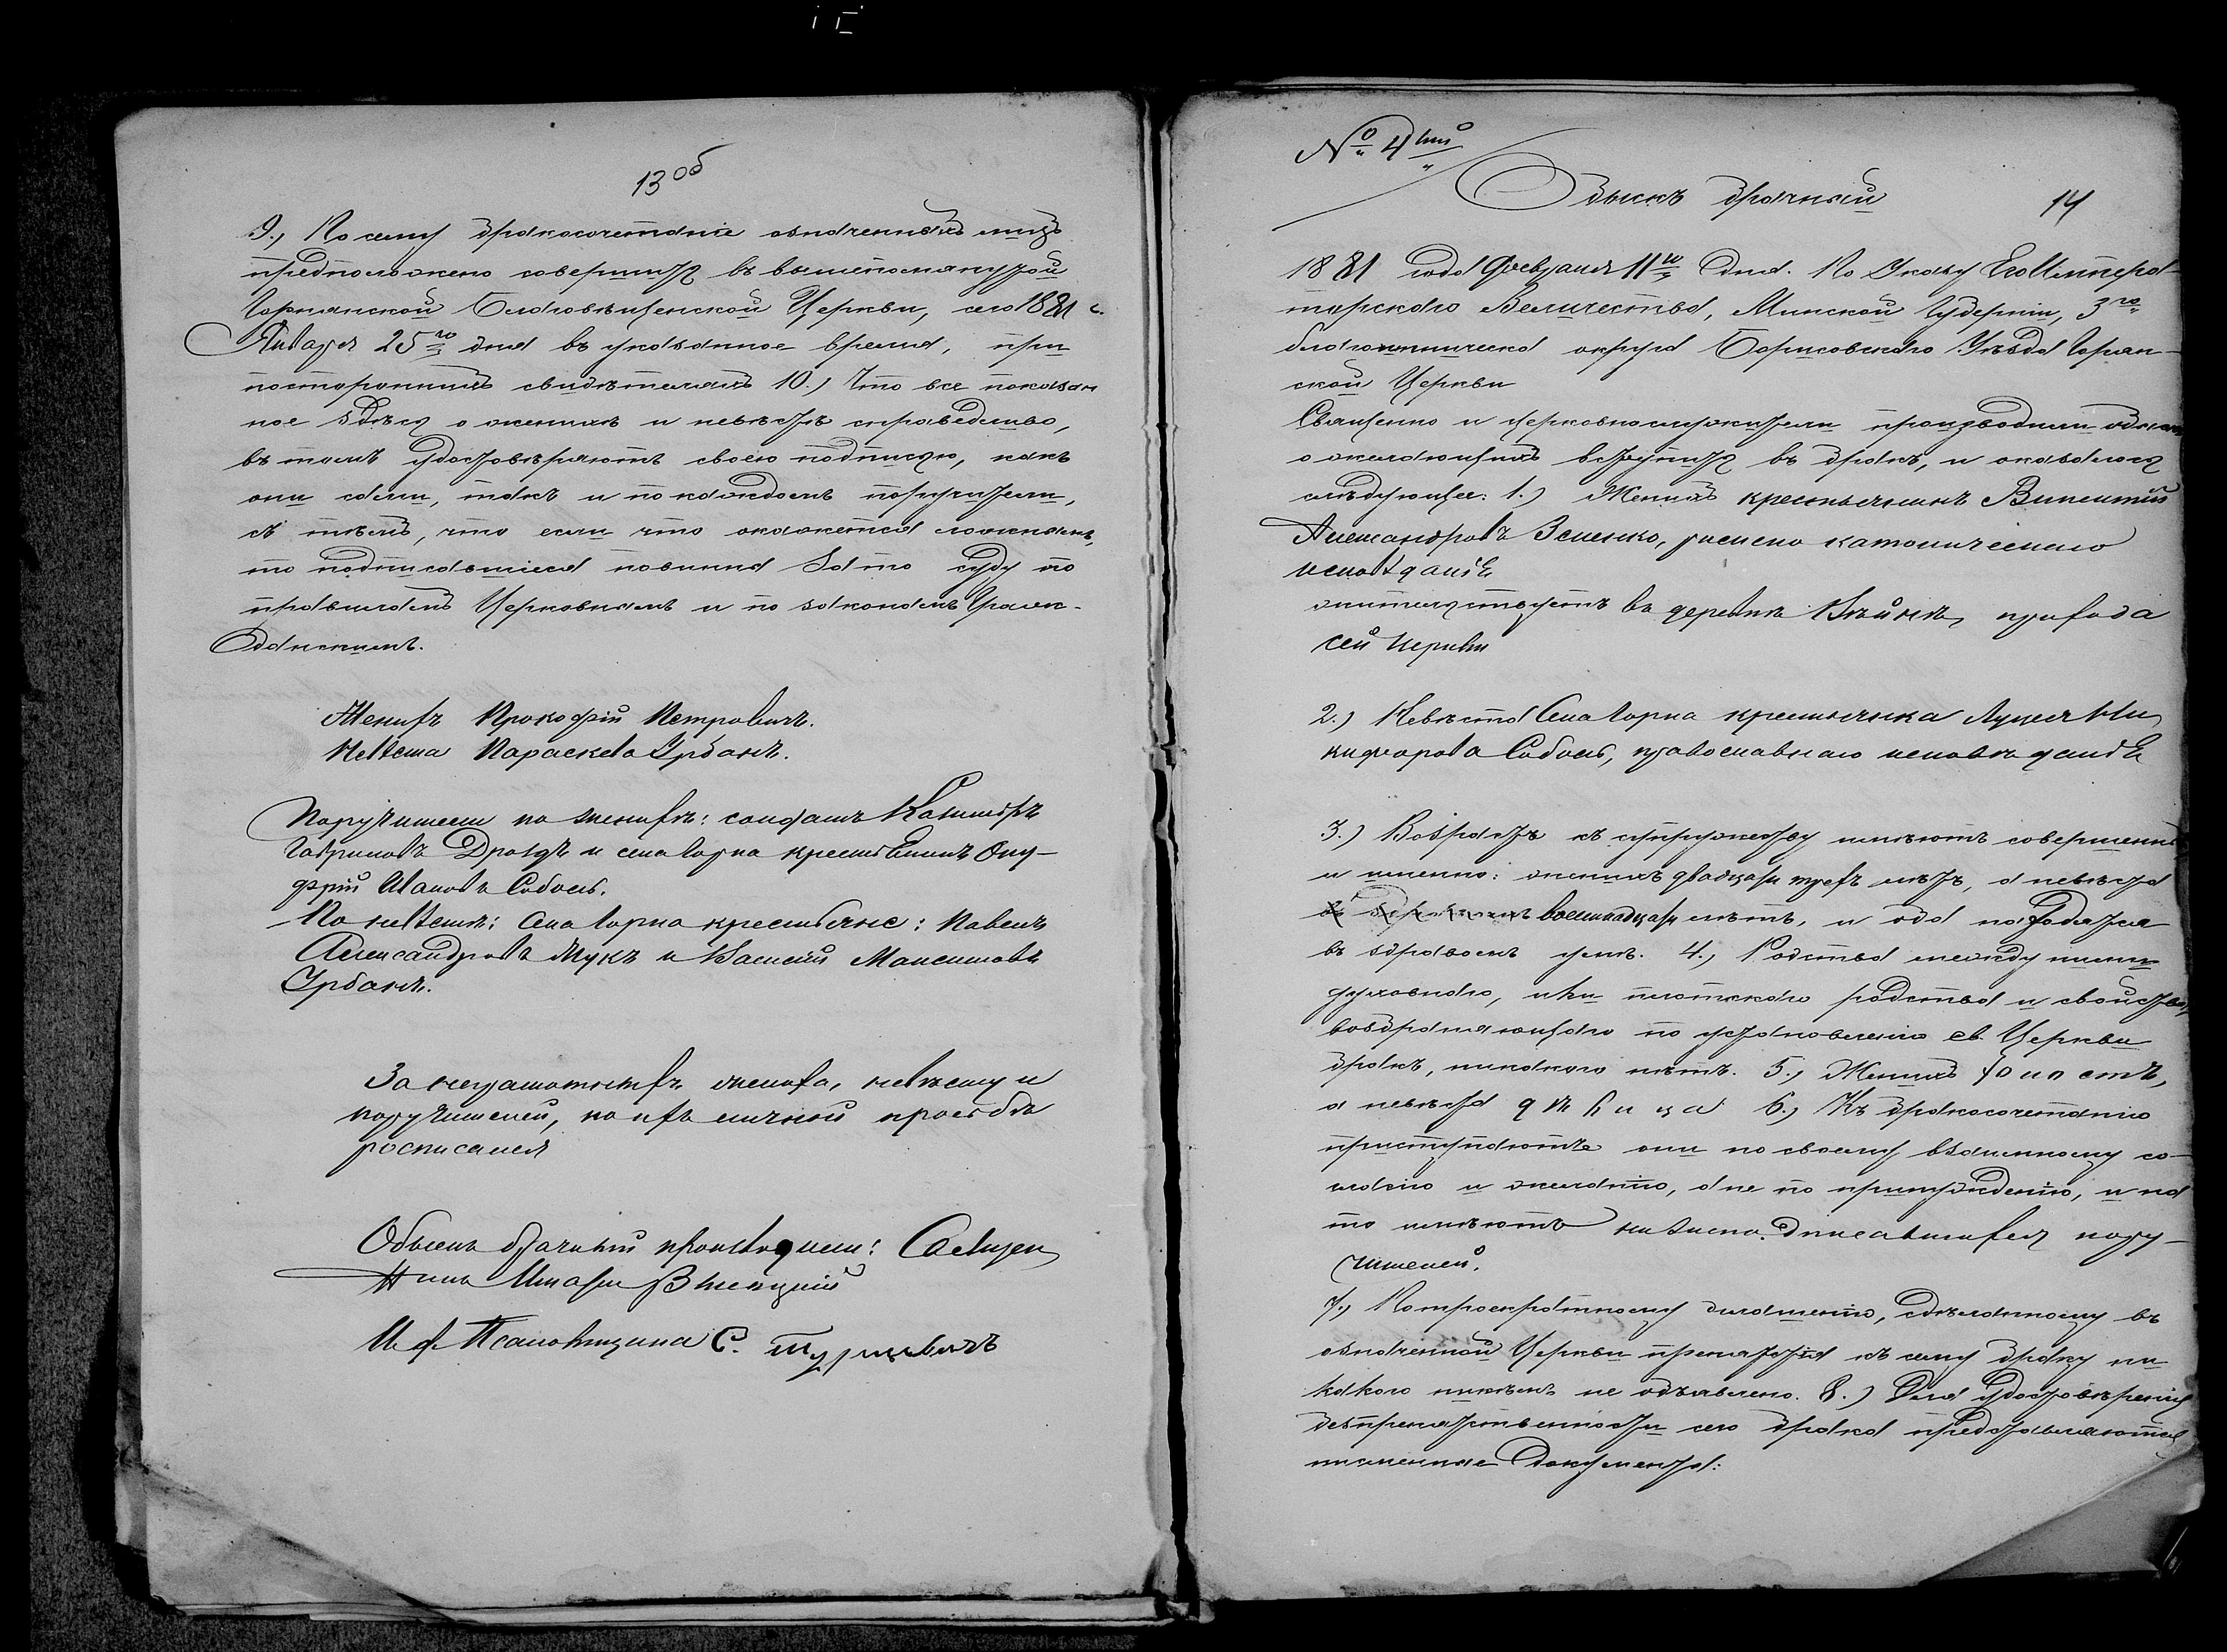 13 об
9., По сему бракосочетаніе означенныхъ лицъ
предположено совершить въ вышепомянутой
Горнянской Благовѣщенской Церкви, сего 1881 г.
Января 25го дня въ указанное время, при
постороннихъ свидѣтеляхъ 10.) Что все показан
ное здѣсь о женихѣ и невѣстѣ справедливо,
въ томъ удостовѣряютъ своею подписью, какъ
они сами, такъ и по каждомъ поручители,
съ тѣмъ, что если что окажется ложнымъ,
то подписавшіеся повинны за то суду по
правиламъ Церковнымъ и по законамъ Граж-
данскимъ.
Женихъ Прокофій Петровичъ.
Невѣста Параскева Урбанъ.
Поручители по женихѣ: солдатъ Казиміръ
Гавриловъ Драздъ и села Горна крестьянинъ Ону-
фрій Ивановъ Соболь.
По невѣстѣ: села Горна крестьяне: Павелъ
Александровъ Мукъ и Василій Максимовъ
Урбанъ.
За неграмотныхъ жениха, невѣсту и
поручителей, по ихъ личной просьбѣ
росписался
Обыскъ брачный производили: Священ
никъ
И. д. Псаломщика С.
№ 4тый
Обыскъ брачный
14
1881 года Февраля 11го Дня. По Указу Его Императ-
орскаго Величества, Минской Губерніи, 3го
благочинническа округа Борисовскаго Уѣзда Горян-
ской Церкви
Священно и церковнослужители производили обыскъ
о желающихъ вступить въ бракъ, и оказалось
слѣдующее: 1.) Женихъ крестьянинъ Викентій
Александровъ Зеленко, римско католическаго
исповѣданія
жительствуетъ въ деревнѣ прихода
сей Церкви
2.) Невѣста Села Горна крестьянка Луция Ни
кифорова Соболь, православнаго исповѣданія
3.) Возрастъ къ супружеству имѣютъ совершенный
и именно: женихъ двадцати трехъ лѣтъ, а невѣста
восемнадцати лѣтъ, и оба находятся
въ здравомъ умѣ. 4., Родства между ними
духовнаго, или плотскаго родства и свойства,
возбраняющаго по установленію св. Церкви
бракъ, никакого нѣтъ. 5., Женихъ холостъ,
а невѣста дѣвица 6., Къ бракосочетанію
приступаютъ они по своему взаимному со-
гласію и желанію, а не по принужденію, и на
то имѣютъ нижеподписавшихся пору-
чителей.
7., По троекратному оглашенію, сдѣланному въ
означенной Церкви препятствія къ сему браку ни
какого никѣмъ не объявлено. 8.) Для удостовѣренія
безпрепятственности сего брака предоставляются
письменные документы: